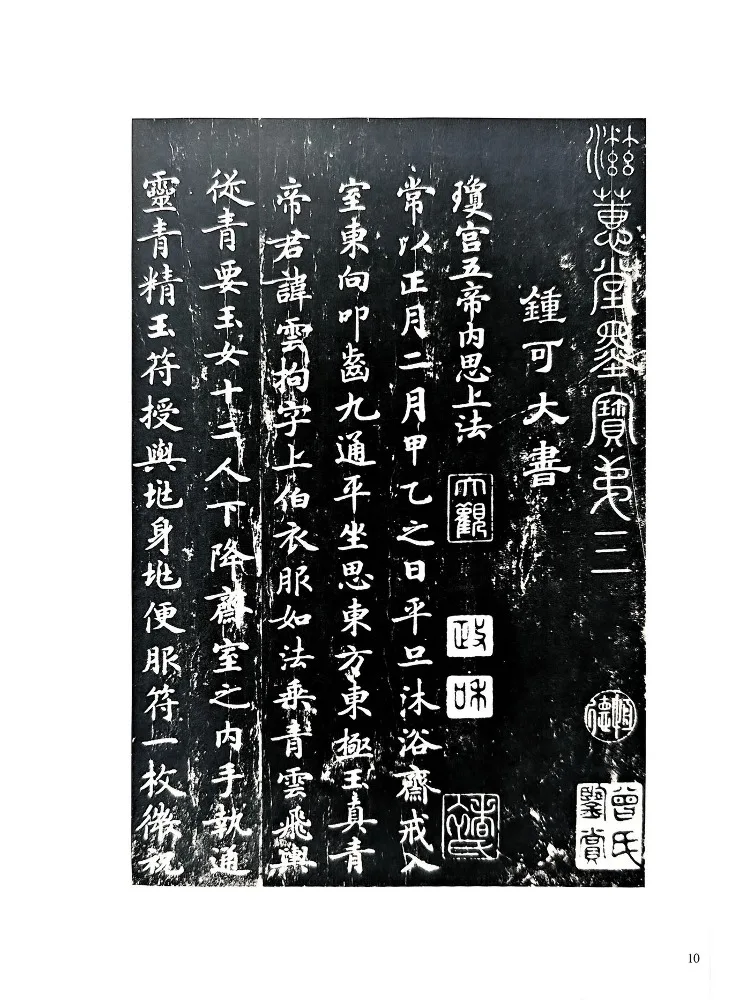 滋蕙堂墨寶第三
鍾可大書
瓊宮五帝內思上法
常以正月二月甲乙之日平旦沐浴齋戒入
室東向叩齒九通平坐思東方東極玉真青
帝君諱雲拘字上伯衣服如法乘青雲飛輿
從青要玉女十二人下降齋室之內手執通
靈青精玉符授與兆身兆便服符一枚微祝
大觀
政
和
曾氏
鑒賞
10